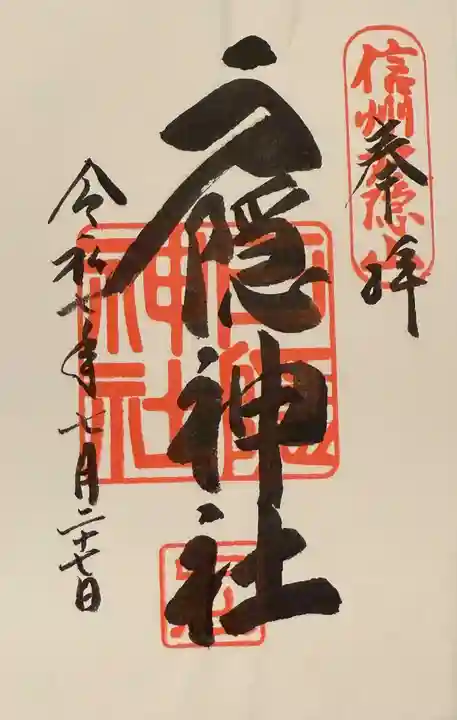 信州戸隠山
奉拝
戸隠神社
戸隠
神社
令和七年七月二十七日